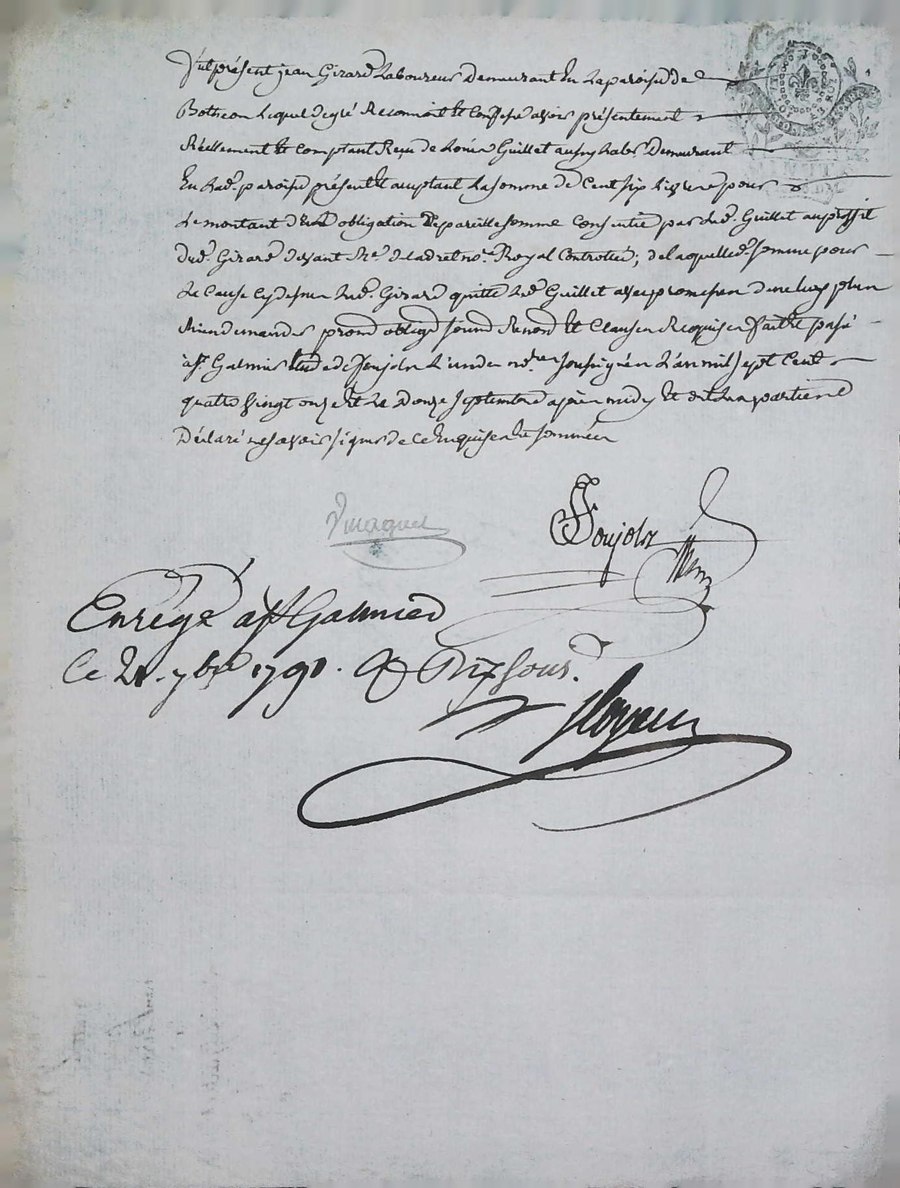 Fut présent jean Girard Laboureur Demeurant En La paroisse de
Botheon Lequel de gré Reconnoit Et Confesse avoir présentement
Réellement Et Comptant Reçu de Louis Guillet aussy Labr Demeurant
En Lad. paroisse présent Et acceptant La somme de Cent six Livres pour
Le montant d'une obligation De pareille somme Consentie par Led. Guillet au proffit
dud. Girard devant Me no.re Royal Controllée; de laquelle d. somme pour
La Cause Cy dessus Led. Girard quitte Led. Guillet avec promesse de ne luy plus
Rien demander prom oblig soum Renon Et Clauses Requises fait Et passé
à St. Galmier Etude de Soujolz L'un des no.res soussignés L'an mil sept Cent
quatre vingt onze Et Le Douze septembre après midy Et ont Les parties
Déclaré ne savoir signer de ce Enquises Et sommées
Soujolz
Enregé a St Galmier
Ce 21. 7bre 1791. Dix sous.